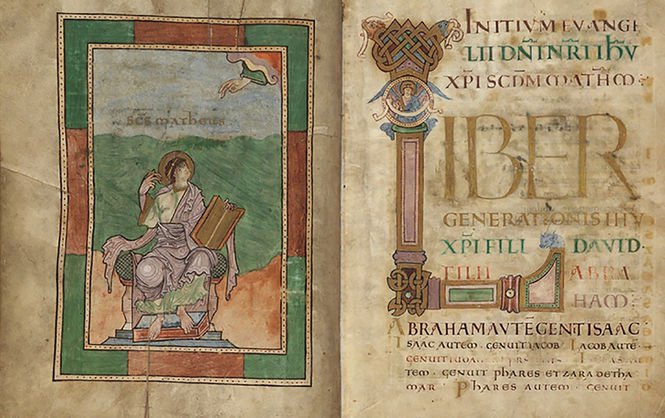 SC̄S MATHEUS
INITIUM EVANGE
LII DN̄I NR̄I IHU
XP̄I SCDM MATHM
LIBER
GENERATIONIS IHU
XP̄I FILI DAVID
FILII ABRA
HAM
ABRAHAM AUTE GENT ISAAC
ISAAC AUTEM GENUIT IACOB IACOB AUTE
GENUIT IUDA
TEM GENUIT PHARES ET ZARA DE THA
MAR PHARES AUTEM GENUIT